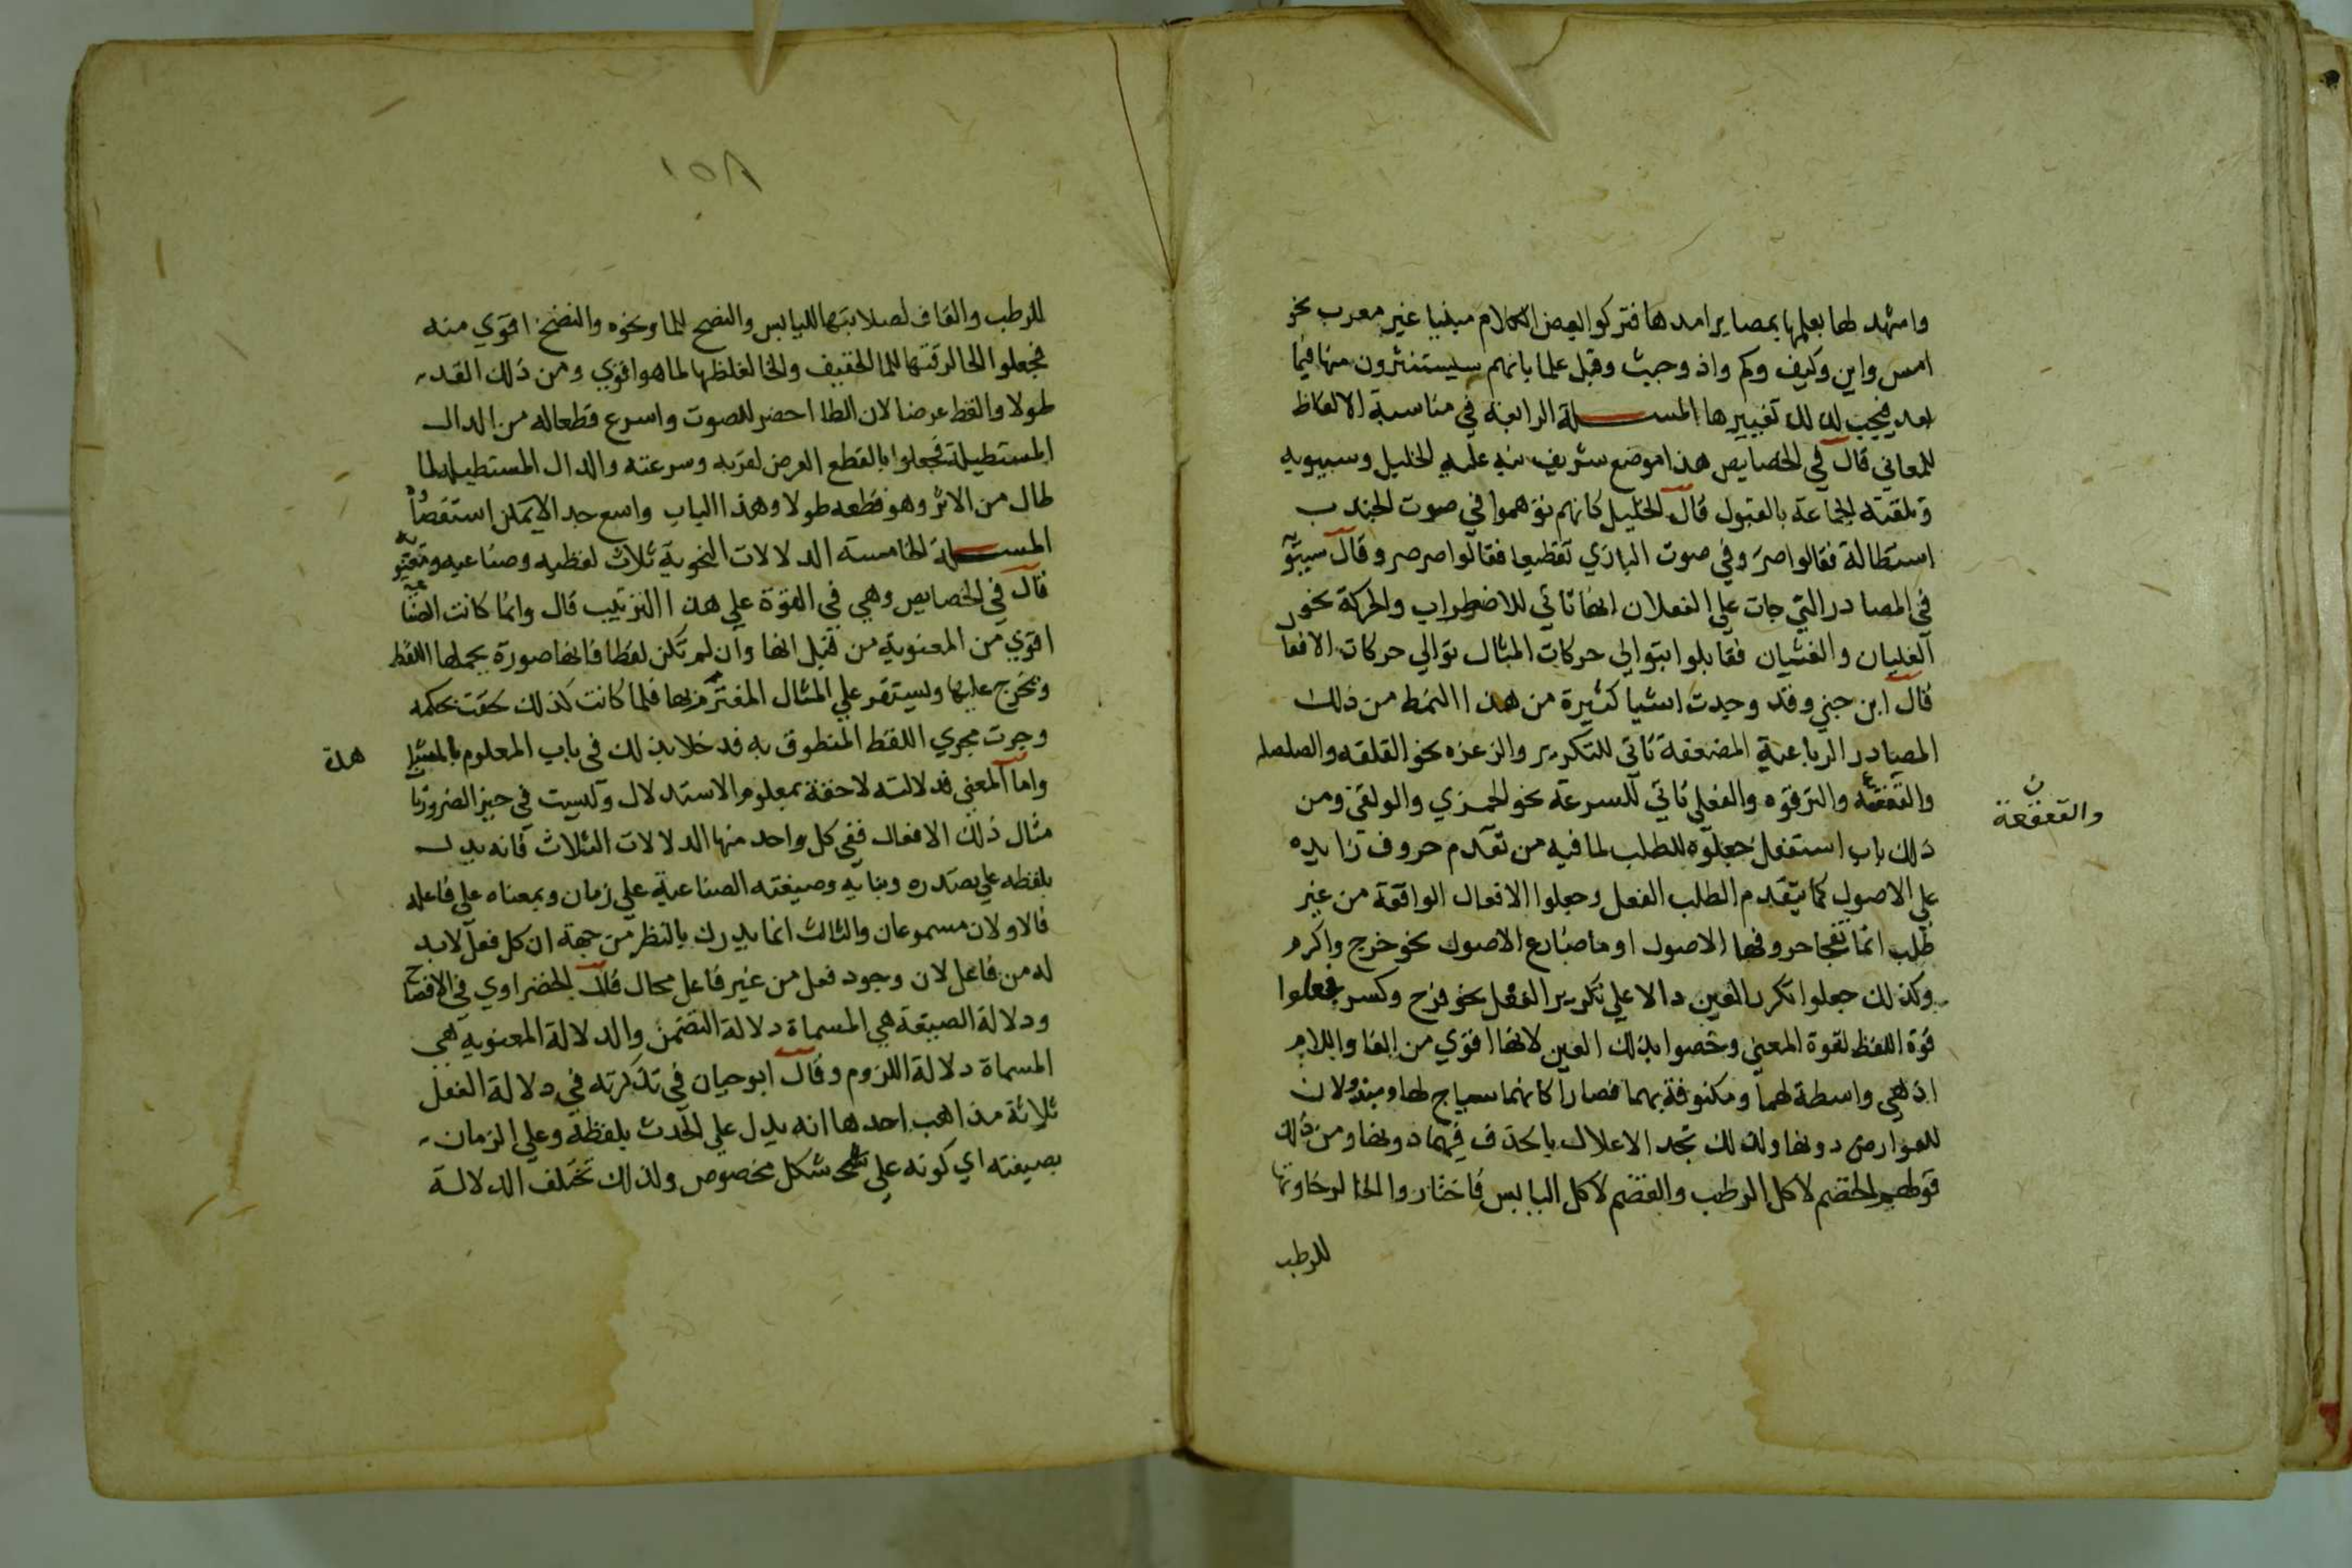 واشهد لها بعلمها بمصاير امدها فتركوا بعض الكلام مبنيا غير معرب نحو
امس واين وكيف وكم واذ وحيث وقبل علما بانهم سيستنثرون منها فيما
بعد فيجب لذلك تغييرها المسـلة الرابعة في مناسبة الالفاظ
للمعاني قال في الخصايص هذا موضع شريف نبه عليه الخليل وسيبويه
وتلقته الجماعة بالقبول قال الخليل كانهم توهموا في صوت الجندب
استطالة فقالوا صر وفي صوت البازي تقطيعا فقالوا صرصر وقال سيبو
في المصادر التي جات علي الفعلان انها تاتي للاضطراب والحركة نحو
الغليان والغثيان فقابلوا بتوالي حركات المثال توالي حركات الافعا
قال ابن جني وقد وجدت اشيا كثيرة من هذا النمط من ذلك
المصادر الرباعية المضعفة تاتي للتكرير والزعزه نحو القلقه والصلصله
والقعقعه والقرقره والفعلي تاتي للسرعة نحو الجمزي والولقي ومن
والقعقعة
ذلك باب استفعل جعلوه للطلب لما فيه من تقدم حروف زايده
علي الاصول كما يتقدم الطلب الفعل وجعلوا الافعال الواقعة من غير
طلب انما تفجا حروفها الاصول او ما ضارع الاصول نحو خرج واكرم
وكذلك جعلوا تكرر العين دالا علي تكرير الفعل نحو فرح وكسر فجعلوا
قوة اللفظ لقوة المعني وخصوا بذلك العين لانها اقوي من الفا واللام
اذ هي واسطة لهما ومكنوفة بهما فصارا كانهما سياج لها ومبذولان
للعوارض دونها ولذلك تجد الاعلال بالحذف فيهما دونها ومن ذلك
قولهم الخضم لاكل الرطب والقضم لاكل اليابس فاختاروا الخا لرخاوتها
للرطب
١٥٨
للرطب والقاف لصلابتها لليابس والنضح للما ونحوه والنضخ اقوي منه
فجعلوا الحا لرقتها للما الخفيف والخا لغلظها لما هو اقوي ومن ذلك القد
طولا والقط عرضا لان الطا احضر للصوت واسرع قطعا له من الدال
المستطيلة فجعلوا بالقطع العرض لقربه وسرعته والدال المستطيله لما
طال من الاثر وهو قطعه طولا وهذا الباب واسع جدا لا يمكن استقصاؤه
المسـلة الخامسة الدلالات النحوية ثلاث لفظيه وصناعيه ومعنويه
قال في الخصايص وهي في القوة علي هذا الترتيب قال وانما كانت الصناعية
اقوي من المعنوية من قبل انها وان لم تكن لفظا فانها صورة يحملها اللفظ
ويخرج عليها ويستقر علي المثال المعتزم بها فلما كانت كذلك لحقت بحكمه
وجرت مجري اللفظ المنطوق به فدخلا بذلك في باب المعلوم بالمشا
هدة
واما المعني فدلالته لاحقة بعلوم الاستدلال وليست في حيز الضروريا
مثال ذلك الافعال ففي كل واحد منها الدلالات الثلاث فانه يدل
بلفظه علي مصدره وبنايه وصيغته الصناعية علي زمان وبمعناه علي فاعله
فالاولان مسموعان والثالث انما يدرك بالنظر من جهة ان كل فعل لابد
له من فاعل لان وجود فعل من غير فاعل محال قال الخضراوي في الافصاح
ودلالة الصيغة هي المسماة دلالة التضمن والدلالة المعنويه هي
المسماة دلالة اللزوم وقال ابو حيان في تذكرته في دلالة الفعل
ثلاثة مذاهب احدها انه يدل علي الحدث بلفظه وعلي الزمان
بصيغته اي كونه علي شكل مخصوص ولذلك تختلف الدلالة